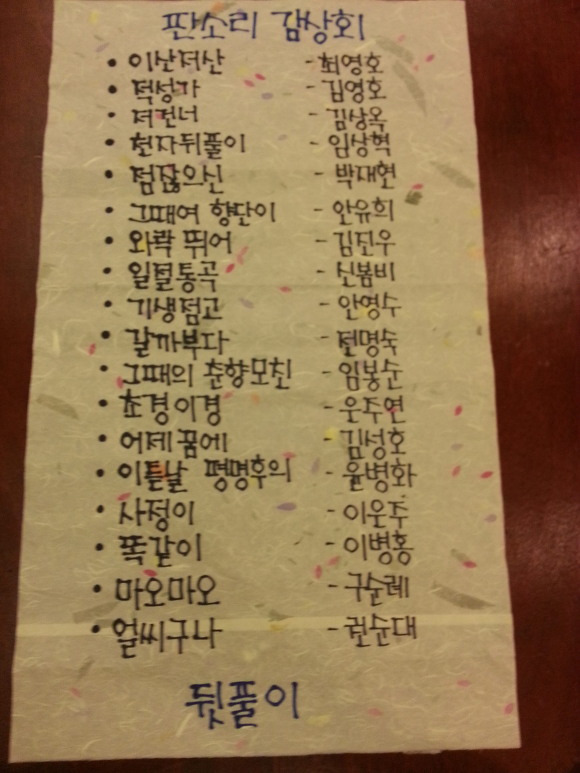 판소리 감상회
• 이산저산 - 최영호
• 적성가 - 김영호
• 저건너 - 김상옥
• 천자뒤풀이 - 임상혁
• 점잖으신 - 박재현
• 그때여 향단이 - 안유희
• 와락 뛰어 - 김진우
• 일절통곡 - 신봄비
• 기생점고 - 안영수
• 갈까부다 - 전명숙
• 그때의 춘향모친 - 임봉순
• 초경이경 - 우주연
• 어제꿈에 - 김성호
• 이튿날 평명후의 - 윤병화
• 사정이 - 이운주
• 똑같이 - 이병홍
• 마오마오 - 구순례
• 얼씨구나 - 권순대
뒷풀이